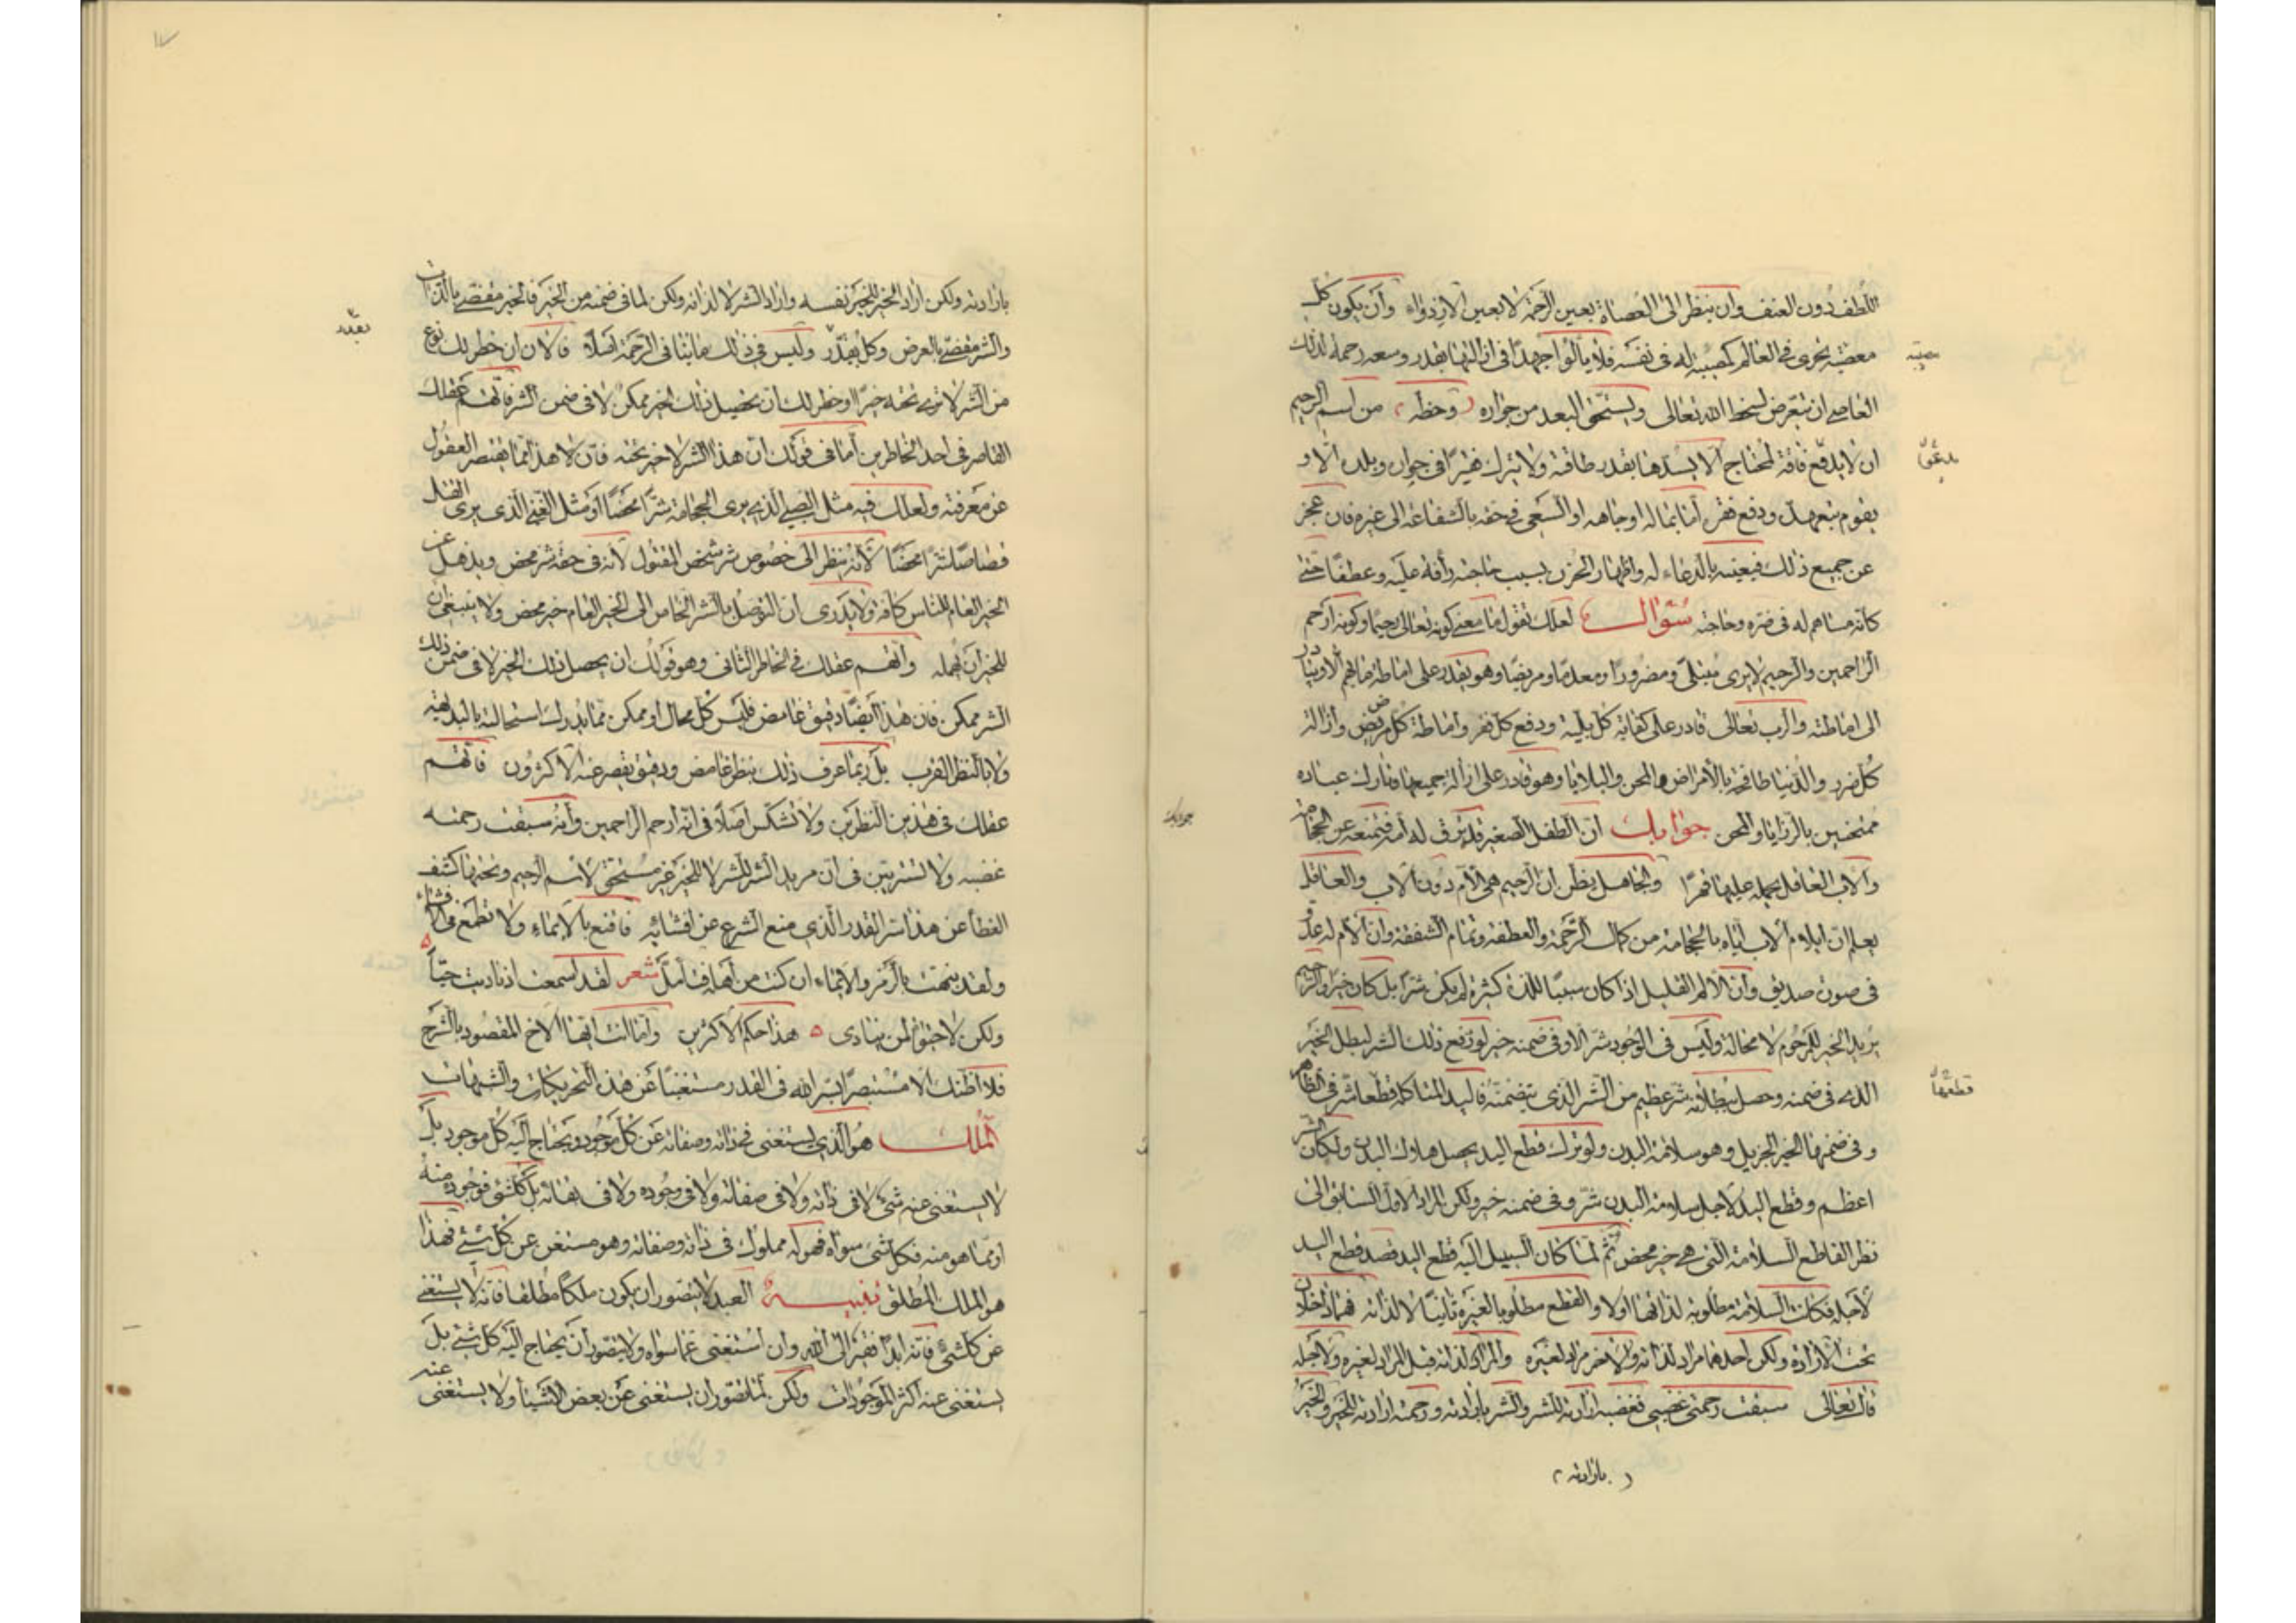 اللطف دون العنف وان ينظر الى العصاة بعين الرحمة لا بعين الازدراء وأن يكون كل
معصية تجرى في العالم كمصيبة له في نفسه فلا يألوا جهدا في ازالتها بقدر وسعه رحمة لذلك
العاصي ان يتعرض لسخط الله تعالى ويستحق البعد من جواره وحظه من اسم الرحيم
ان لا يدفع فاقة لمحتاج الا يسدها بقدر طاقته ولا يترك فقيرا في جواره وبلده الا و
يقوم بتعهده ودفع فقره اما بماله او جاهه او السعى في حقه بالشفاعة الى غيره فان عجز
عن جميع ذلك فيعينه بالدعاء له واظهار الحزن بسبب حاجته رأفة عليه وعطفا حتى
كأنه مساهم له في ضره وحاجته سؤال لعلك تقول ما معنى كونه تعالى رحيما وكونه ارحم
الراحمين والرحيم لا يرى مبتلى ومضرورا ومعدما ومريضا وهو يقدر على اماطة ما بهم الا ويبادر
الى اماطته والرب تعالى قادر على كفاية كل بلية ودفع كل فقر واماطة كل مرض وازالة
كل ضرر والدنيا طافحة بالأمراض والمحن والبلايا وهو قادر على ازالة جميعها وتارك عباده
ممتحنين بالرزايا والمحن جوابك ان الطفل الصغير قد يرق له امه فتمنعه عن الحجامة
والاب العاقل يحمله عليها قهرا والجاهل يظن ان الرحيم هي الام دون الاب والعاقل
يعلم ان ايلام الاب اياه بالحجامة من كمال الرحمة والعطفة وتمام الشفقة وان الام له عدو
في صورة صديق وأن الالم القليل اذا كان سببا للذة كثيرة لم يكن شرا بل كان خيرا والرحيم
يريد الخير للمرحوم لا محالة وليس في الوجود شر الا وفي ضمنه خير لو رفع ذلك الشر لبطل الخير
الذى في ضمنه وحصل ببطلانه شر عظيم من الشر الذى يتضمنه فاليد المتاكلة قطعها شر في الظاهر
وفي ضمنها الخير الجزيل وهو سلامة البدن ولو ترك قطع اليد يحصل هلاك البدن ولكان الشر
اعظم وقطع اليد لاجل سلامة البدن شر وفي ضمنه خير ولكن المراد الاول السابق الى
نظر القاطع السلامة التى هي خير محض ثم لما كان السبيل اليه قطع اليد قصد قطع اليد
لأجله فكانت السلامة مطلوبة لذاتها اولا والقطع مطلوبا لغيره ثانيا لا لذاته فهما داخلان
تحت الارادة ولكن احدهما مراد لذاته والآخر مراد لغيره والمراد لذاته قبل المراد لغيره ولأجله
قال تعالى سبقت رحمتى غضبي فغضبه ارادته للشر والشر بارادته ورحمته ارادته للخير والخير
بارادته
قطعها
جوابك
بارادته ولكن اراد الخير للخير نفسه واراد الشر لا لذاته ولكن لما في ضمنه من الخير فالخير مقضي بالذات
والشر مقضي بالعرض وكل بقدر وليس في ذلك ما ينافى الرحمة اصلا فالان ان خطر لك نوع
من الشر لا ترى تحته خيرا او خطر لك أن تحصيل ذلك الخير ممكن لا في ضمن الشر فاتهم عقلك
القاصر في احد الخاطرين أما في قولك ان هذا الشر لا خير تحته فان هذا مما يقصر العقول
عن معرفته ولعلك فيه مثل الصبي الذى يرى الحجامة شرا محضا او مثل الغبي الذى يرى القتل
قصاصا شرا محضا لأنه ينظر الى خصوص شر شخص المقتول لأنه في حقه شر محض ويذهل عن
الخير العام للناس كافة ولا يدرى ان التوصل بالشر الخاص الى الخير العام خير محض ولا ينبغى ان
للخير أن يهمله واتهم عقلك في الخاطر الثانى وهو قولك ان يحصل ذلك الخير لا في ضمن ذلك
الشر ممكن فان هذا ايضا دقيق غامض فليس كل محال او ممكن مما يدرك استحالته بالبديهة
ولا بالنظر القريب بل ربما عرف ذلك بنظر غامض ودقيق يقصر عنه الاكثرون فاتهم
عقلك في هذين النظرين ولا تشكن اصلا في انه ارحم الراحمين وأنه سبقت رحمته
غضبه ولا تستريبن في ان مريد الشر للشر لا للخير غير مستحق لاسم الرحيم وتحتها كشف
الغطأ عن هذا سر القدر الذى منع الشرع عن افشائه فاقنع بالايماء ولا تطمع في الافشاء
ولقد نبهت بالرمز والايماء ان كنت من اهله فتأمل شعر لقد اسمعت اذ ناديت حيا
ولكن لا حيوة لمن ينادى ٥ هذا حكم الاكثرين وأما انت ايها الاخ المقصود بالشرح
فلا اظنك الا مستبصرا بسر الله في القدر مستغنيا عن هذه التحريكات والتنبيهات
الملك هو الذى يستغنى في ذاته وصفاته عن كل موجود ويحتاج اليه كل موجود بل
لا يستغنى عنه شئ لا في ذاته ولا في صفاته ولا في وجوده ولا في بقائه بل كل شئ فوجوده منه
او مما هو منه فكل شئ سواه فهو له مملوك في ذاته وصفاته وهو مستغن عن كل شئ فهذا
هو الملك المطلق تنبيه العبد لا يتصور ان يكون ملكا مطلقا فانه لا يستغنى
عن كل شئ فانه ابدا فقير الى الله وان استغنى عما سواه ولا يتصور أن يحتاج اليه كل شئ بل
يستغنى عنه اكثر الموجودات ولكن لما تصور ان يستغنى عن بعض الاشيأ ولا يستغنى عنه